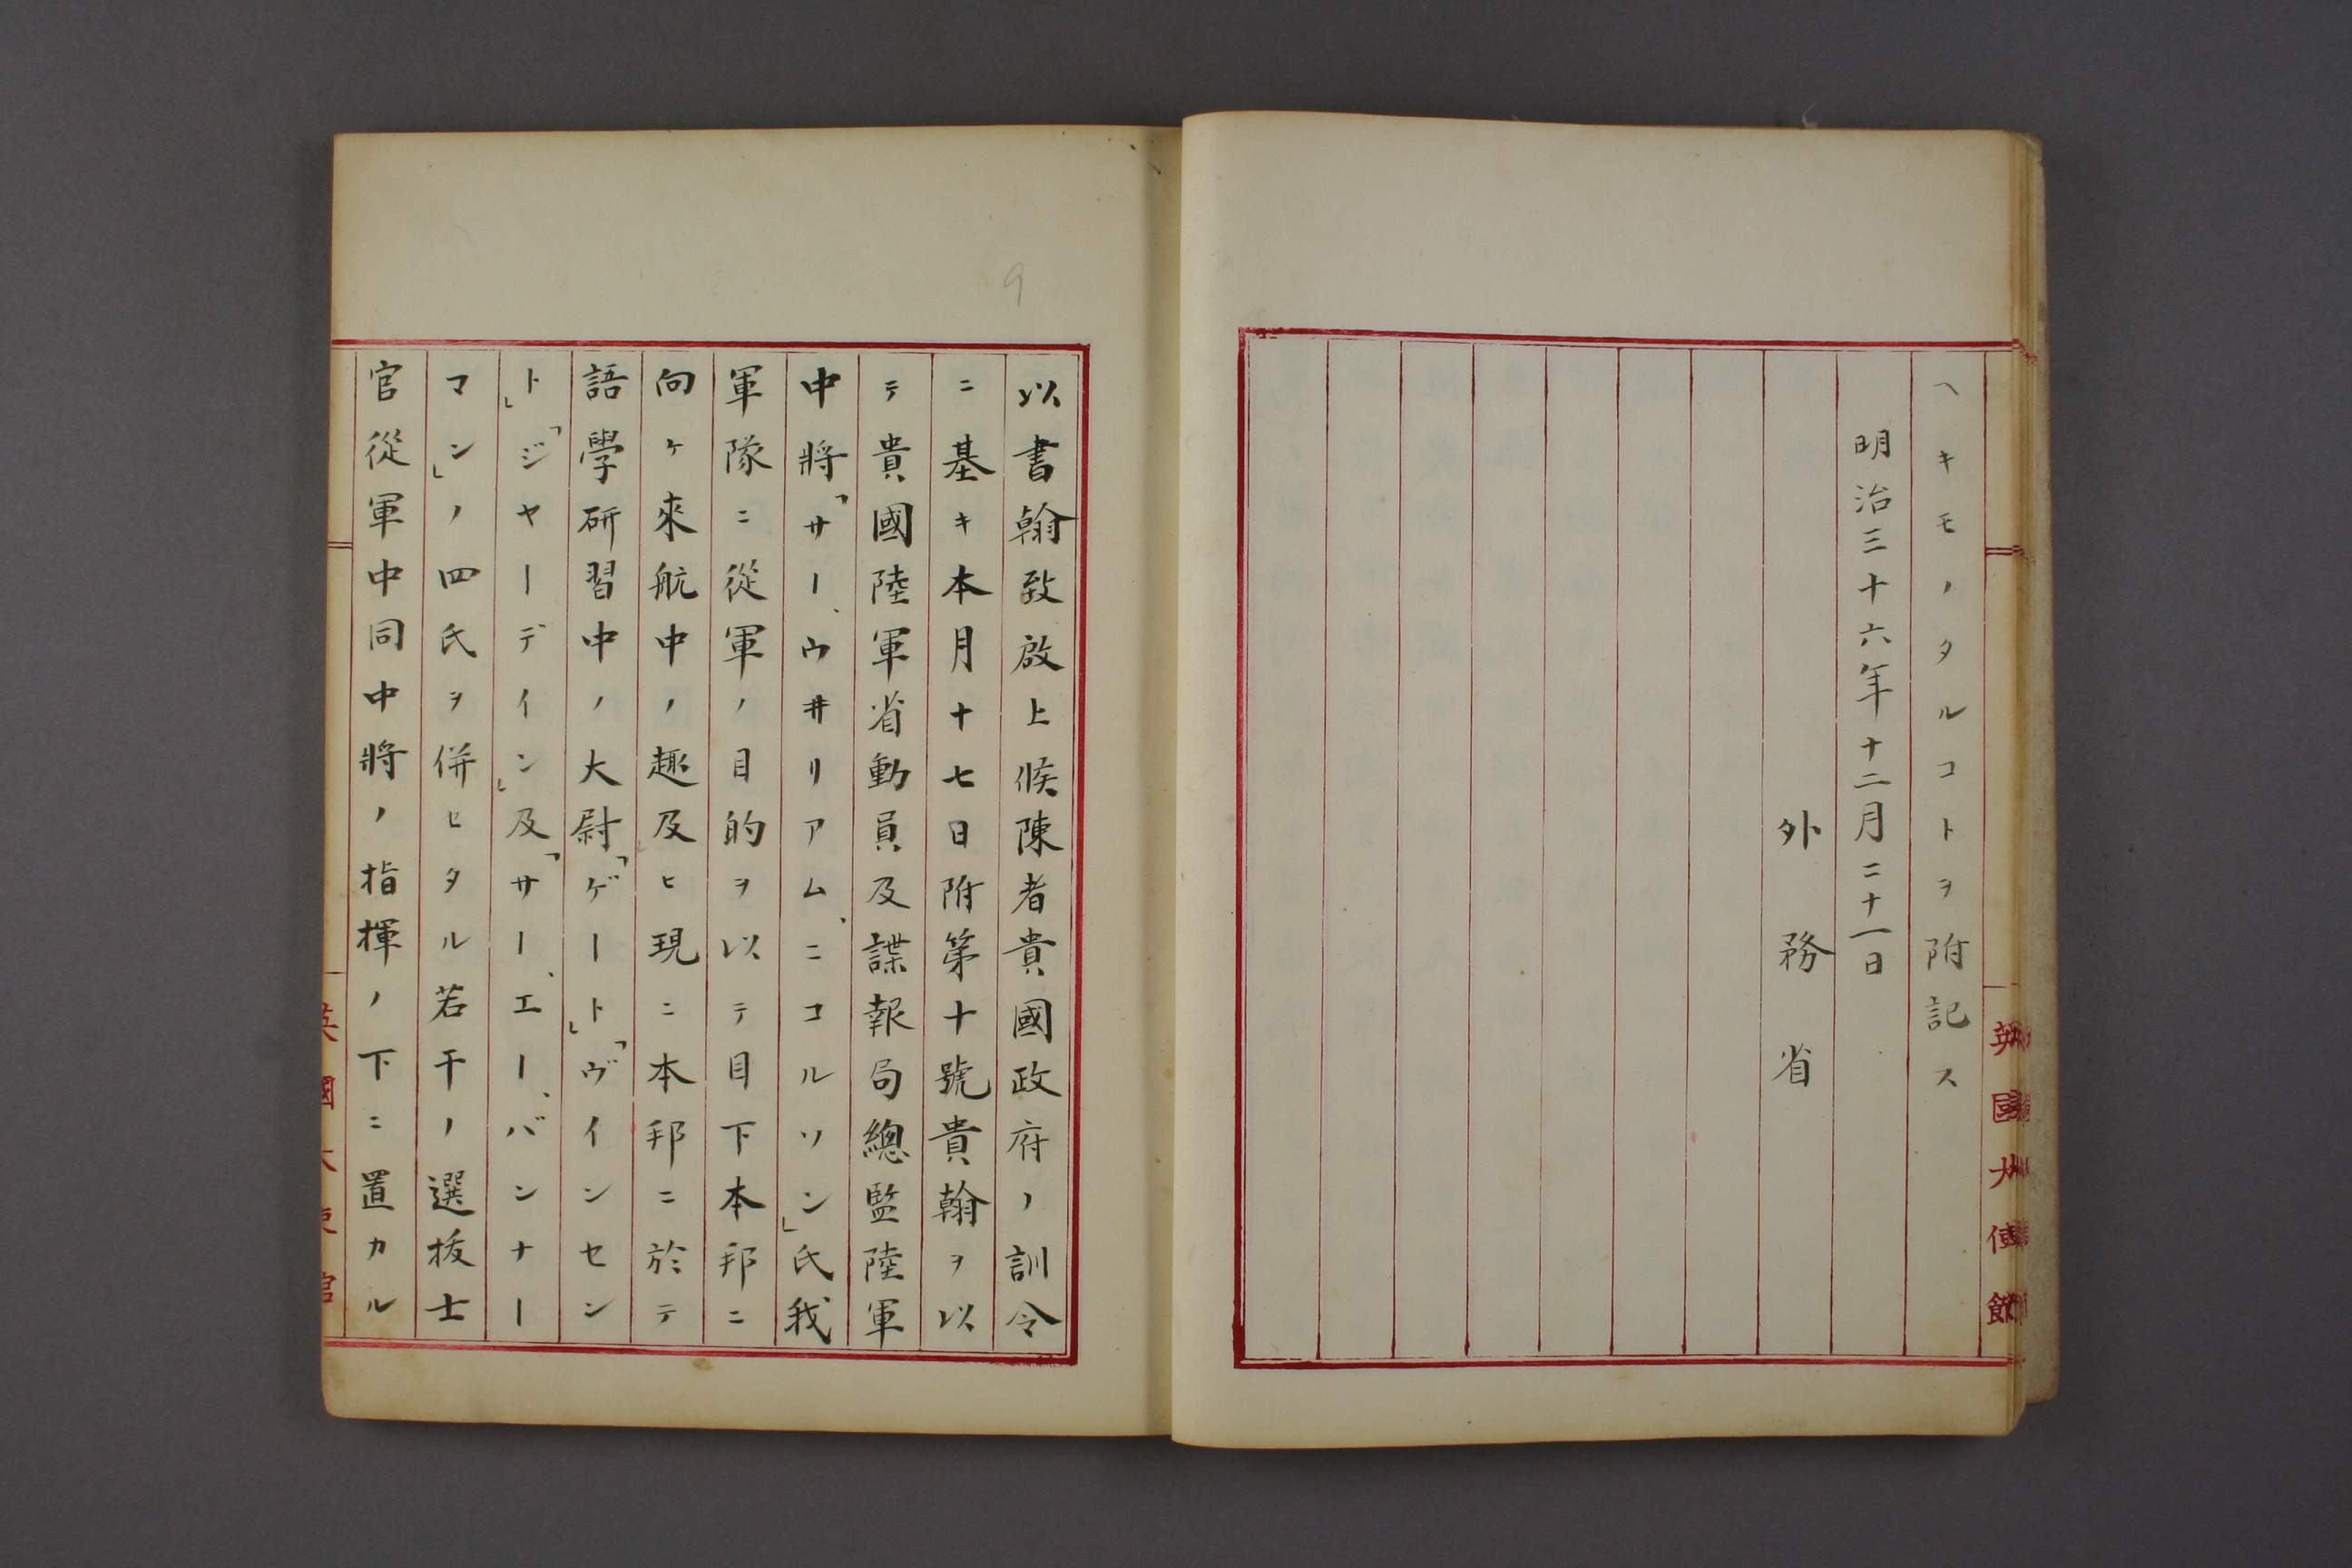 ヘキモノタルコトヲ附記ス
明治三十六年十二月二十一日
外務省
英國大使館
9
以書翰致啟上候陳者貴國政府ノ訓令
ニ基キ本月十七日附第十號貴翰ヲ以
テ貴國陸軍省動員及諜報局總監陸軍
中將「サー、ウ井リアム、ニコルソン」氏我
軍隊ニ從軍ノ目的ヲ以テ目下本邦ニ
向ケ來航中ノ趣及ヒ現ニ本邦ニ於テ
語學研習中ノ大尉「ゲート」「ヴインセン
ト」「ジヤーデイン」及「サー、エー、バンナー
マン」ノ四氏ヲ併ヒタル若干ノ選抜士
官從軍中同中將ノ指揮ノ下ニ置カル
英國大使館